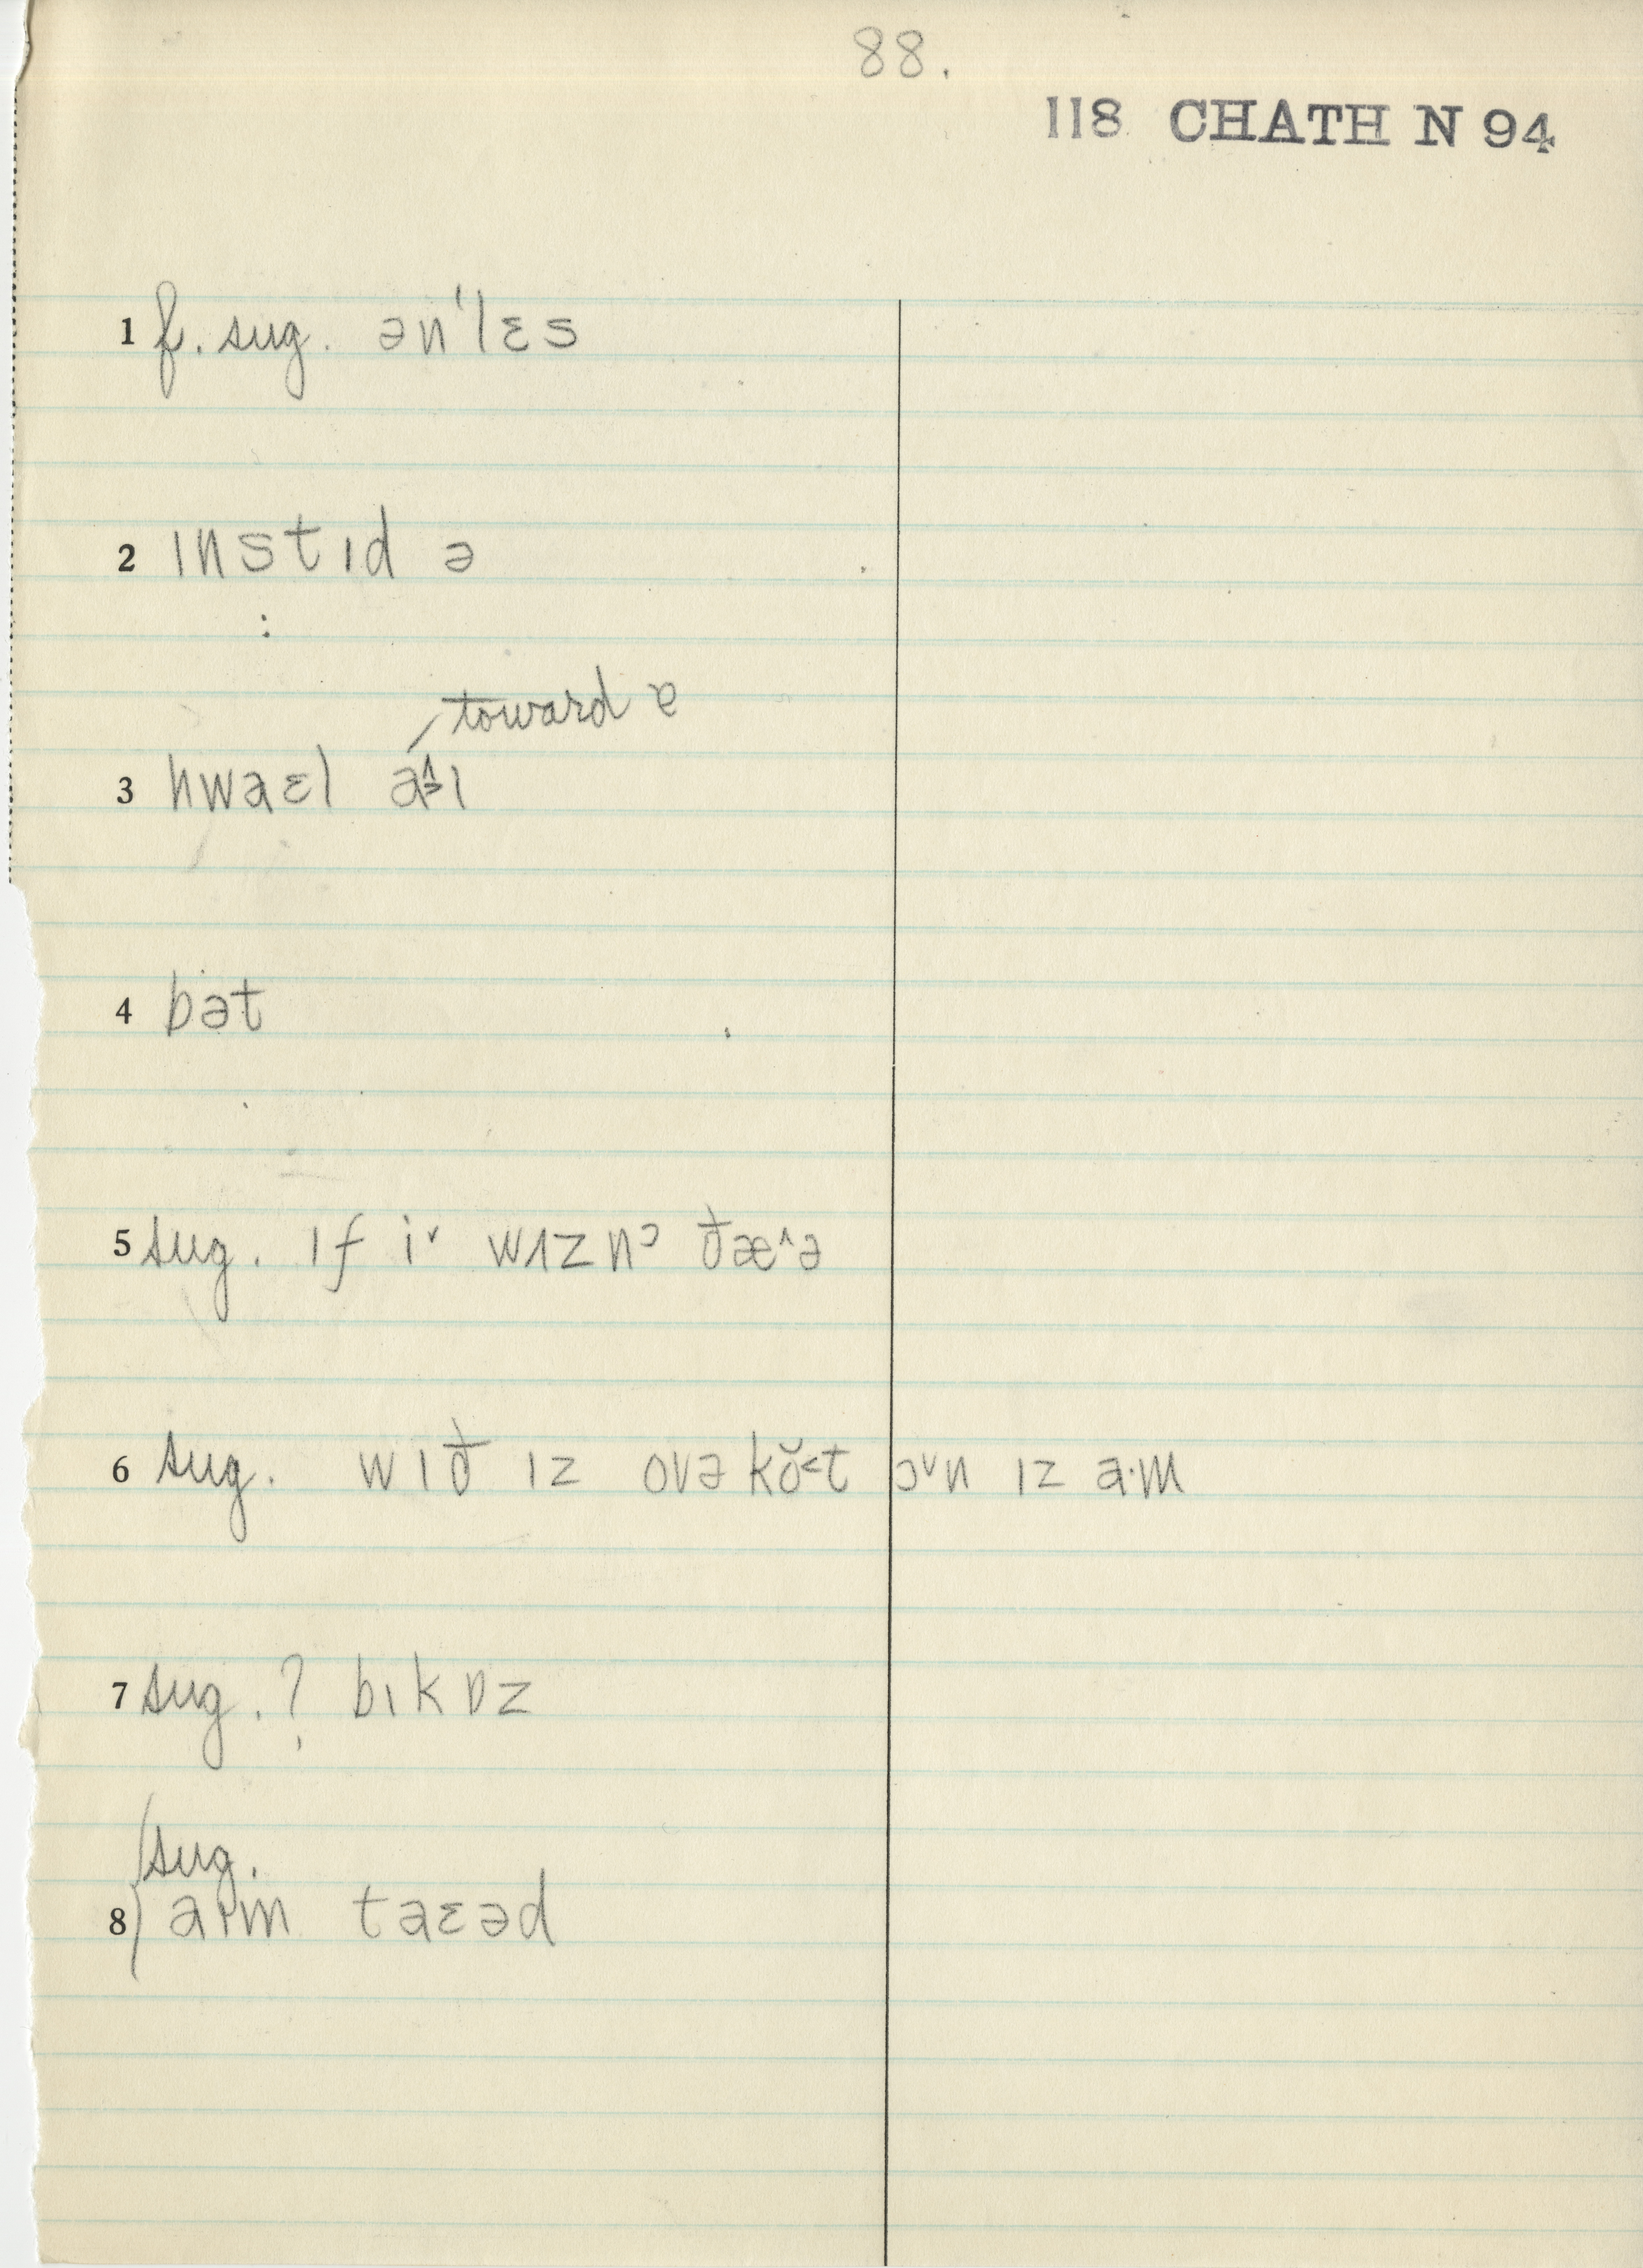 88.
118 CHATH N 94
1 f. sug. ən'lɛs
2 ɪnstɪd ə
toward ɐ
3 hwaɛl a˄˃ɪ
4 bət
5 sug. ɪf i˅ wɪznᵓ ðæ˄ə
6 sug. wɪð ɪz ovə kŏ˂t ɔ˅n ɪz a·m
7 sug.? bɪkɒz
sug.
8 aɪm taɛəd